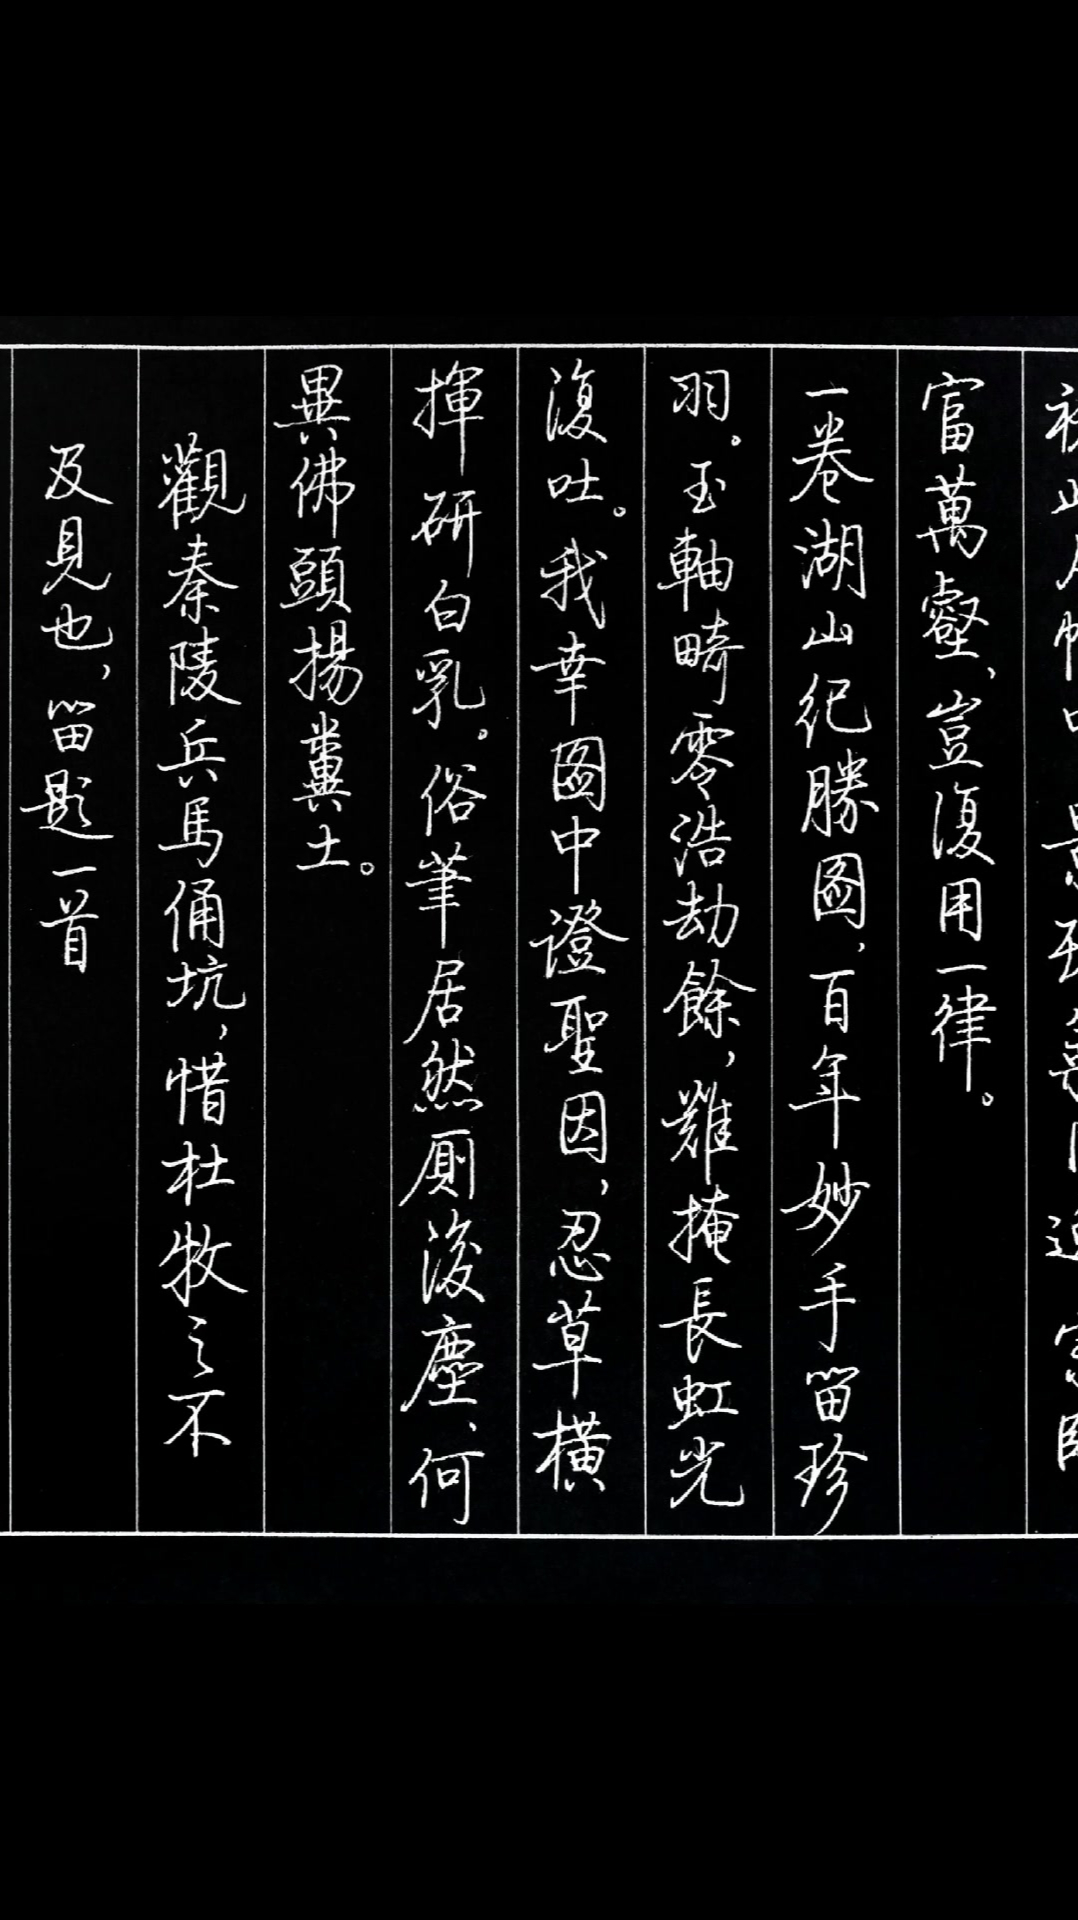 富萬壑、豈復用一律。
一卷湖山紀勝圖，百年妙手畱珍
羽。玉軸畸零浩劫餘，難掩長虹光
復吐。我幸圖中證聖因，忍草橫
揮研白乳。俗筆居然廁後塵、何
異佛頭揚糞土。
觀秦陵兵馬俑坑，惜杜牧之不
及見也，畱題一首